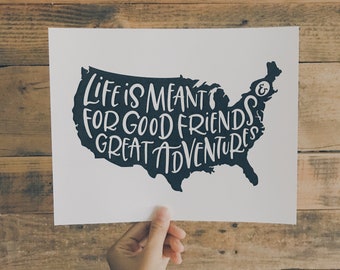 LIFE IS MEANT
FOR GOOD FRIENDS &
GREAT ADVENTURES